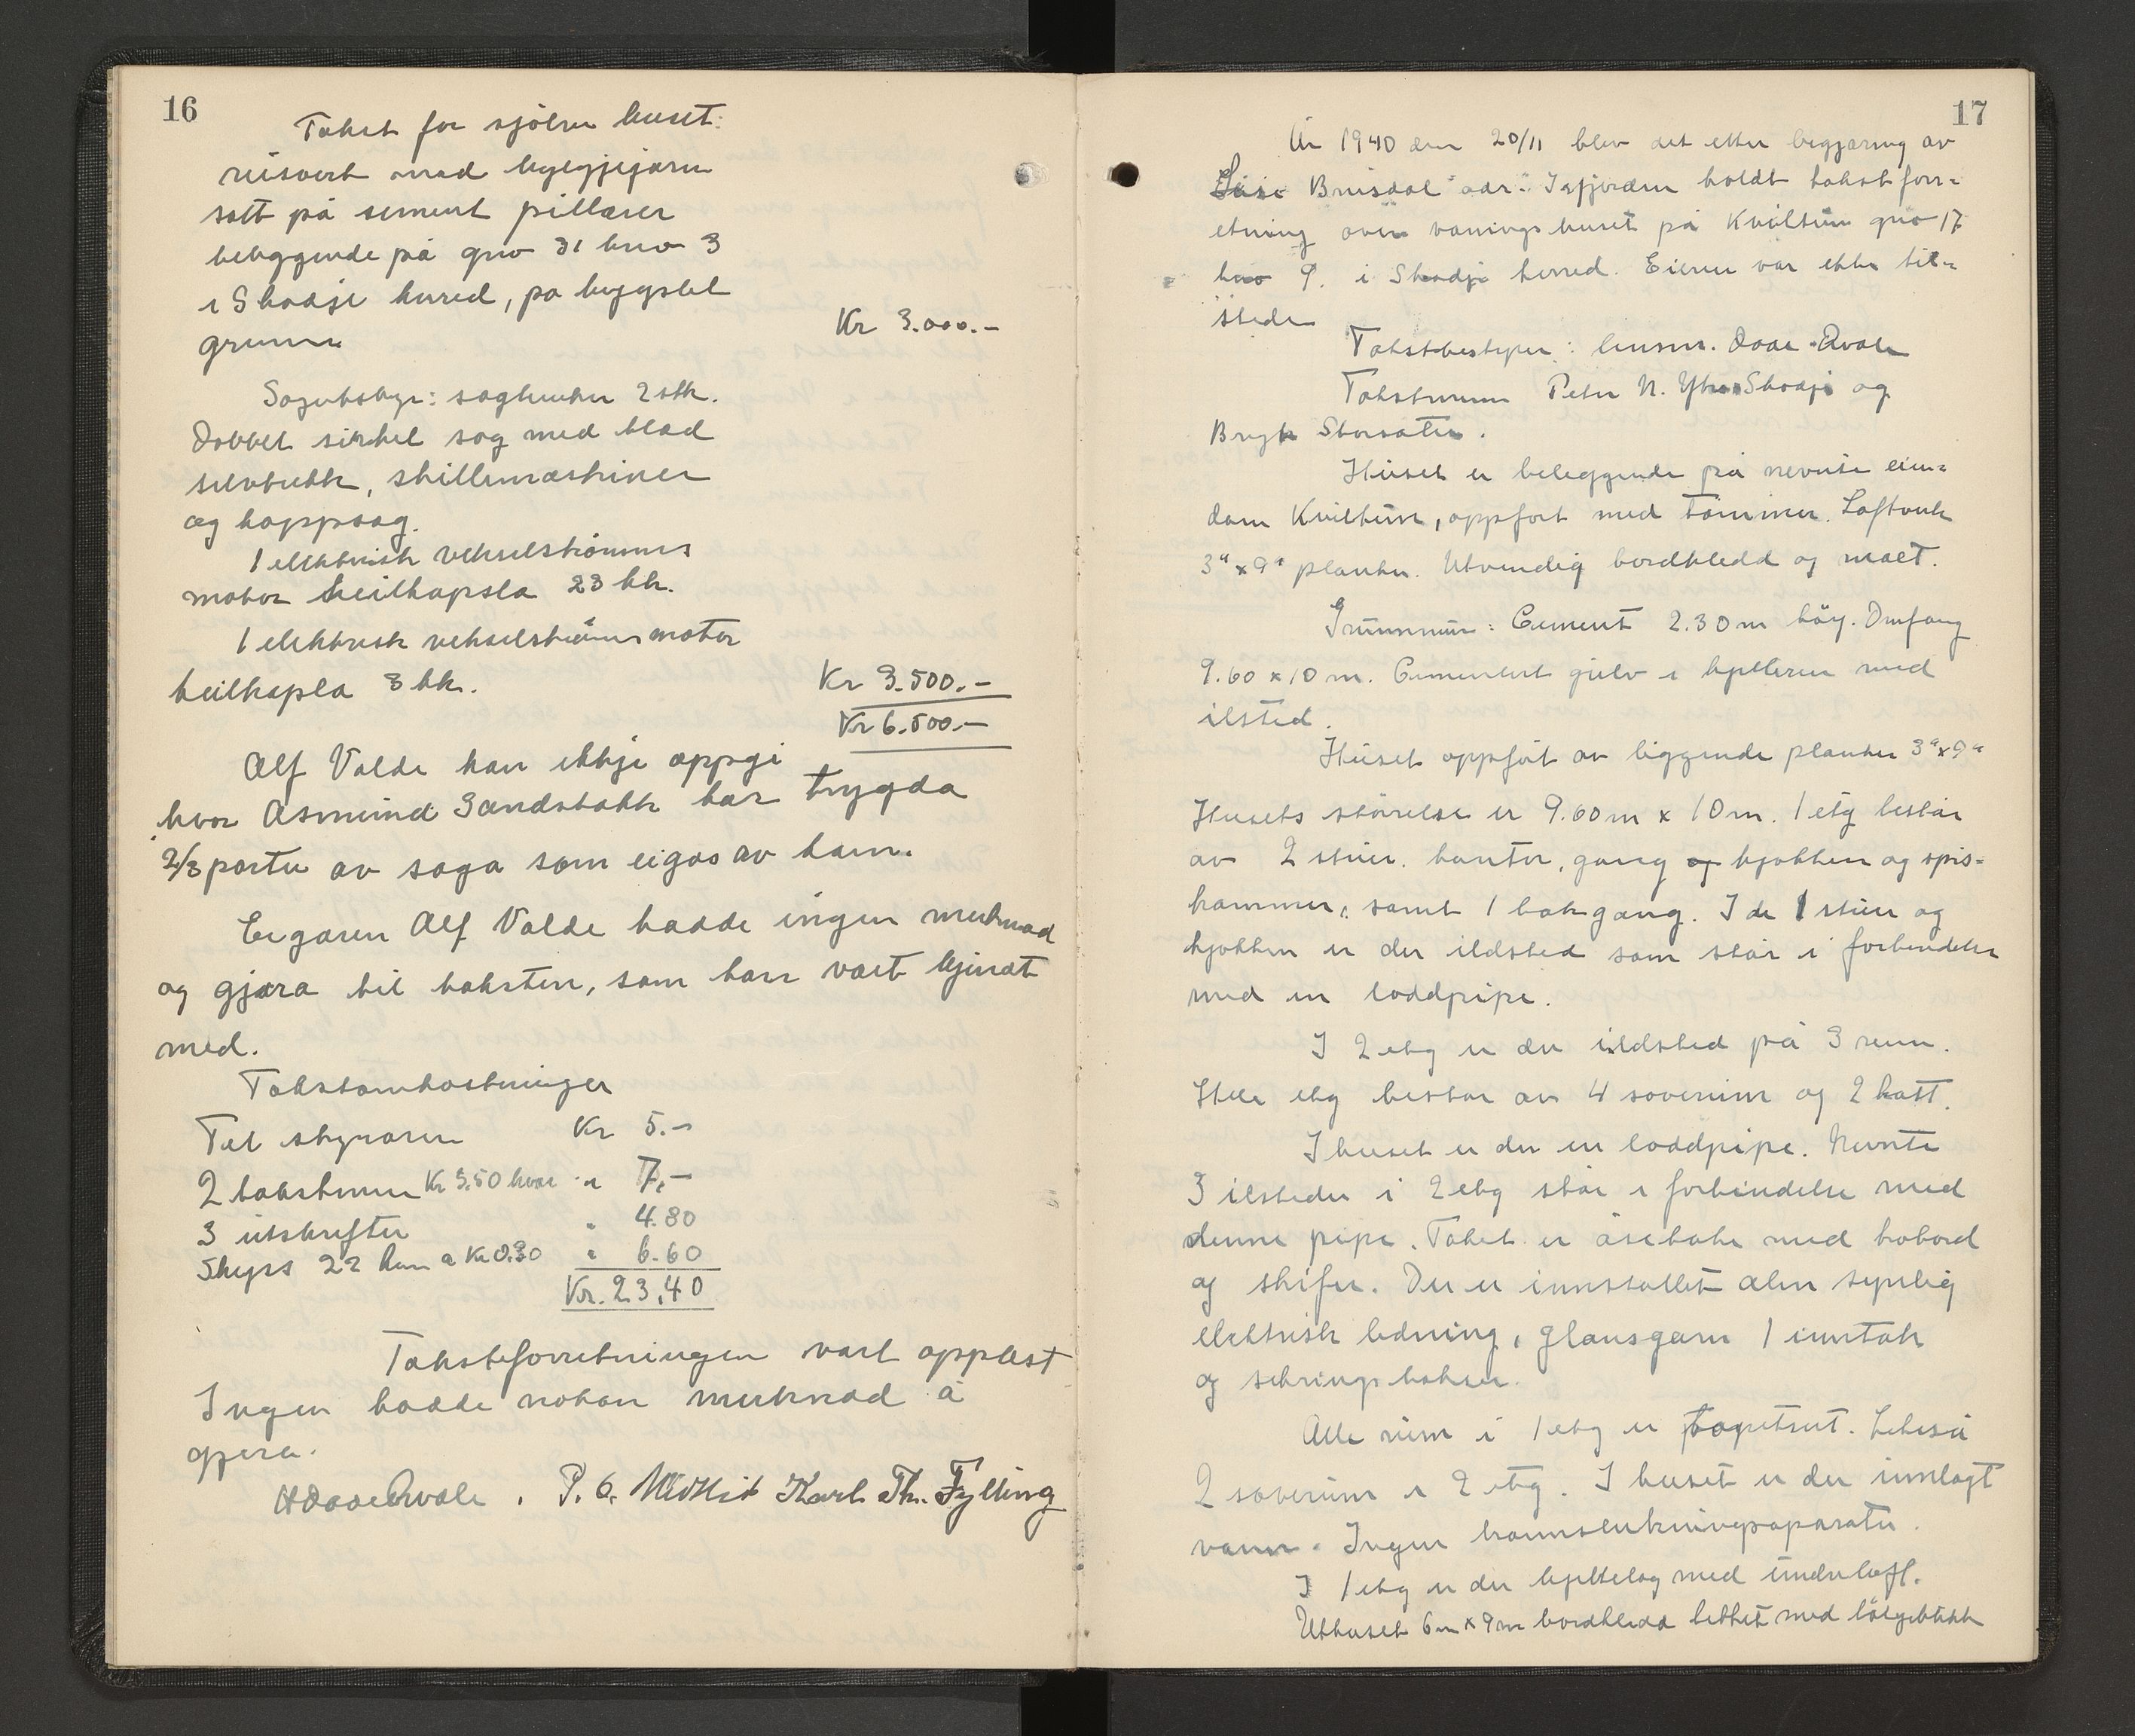 16
Takst for sjølve huset:
reisverk med bylgjejarn
sett på sement pillarer
beleggende på gno 31 bno 3
i Skodje herred, på bygslet
grunn
Kr 3.000.-
Sagutstyr: sagbenker 2 stk.
Dobbel sirkel sag med blad
, skillemaskiner
og kappsag.
1 elektrisk vekselstrømms
motor heilkapsla 23 hk.
1 elektrisk vekselstrøms motor
heilkapsla 3 hk.
Kr 3.500.-
Kr 6.500.-
Alf Valde kan ikkje oppgi
kvar Asmund Sandstakk har trygda
2/3 parten av saga som eigas av ham.
Eigaren Alf Valde hadde ingen merknad
og gjæra til taksten, som han vart kjendt
med.
Takstomkostninger
Til styraren Kr 5.-
2 takstmenn Kr 3.50 kvar " 7,-
3 utskrifter " 4.80
Skyss 22 km a Kr 0.30 " 6.60
Kr. 23,40
Takstforretningen vart opplest
Ingen hadde nokon merknad å
gjera.
P. O. Karl Th. Fylling
17
År 1940 den 20/11 blev det etter begjæring av
Brusdal adr. Isfjorden holdt takst forr-
etning over vanings huset på Kviltun gno 17
bno 9. i Skodje herred. Eieren var ikke til-
stede
Takstbestyrer: lensm. Daae-Qvale
Takstmenn Peter N. Ytre-Skodje og
Storsæter.
Huset er beleggende på nevnte eien-
dom Kviltun, oppført med tømmer. Loftverk
3" x 9" planker. Utvendig bordkledd og malt.
Grunnmur: Cement 2.30 m høg. Omfang
9.60 x 10 m. Cementert golv i kjelleren med
ilsted.
Huset oppført av liggende planker 3" x 9"
Husets størrelse er 9.60 m x 10 m. 1 etg består
av 2 stuer. kontor, gang og kjøkken og spis-
kammer, samt 1 bakgang. I de 1 stuer og
kjøkken er der ildsted som står i forbindelse
med en loddpipe.
I 2 etg er der ildsted på 3 rum.
Hele etg består av 4 soverum og 2 kott.
I huset er der en loddpipe. Nevnte
3 ilsteder i 2 etg står i forbindelse med
denne pipe. Taket er åsetake med trobord
og skifer. Der er innstallet alm synlig
elektrisk ledning, glansgarn 1 inntak
og sikringsboksen.
Alle rum i 1 etg er tapetsert. Likeså
2 soverum i 2 etg. I huset er der innlagt
vann. Ingen brannslukningsaparater.
I 1 etg er der bjelkelag med underloft.
Uthuset 6 m x 9 m bordkledd tekket med bølgeblikk